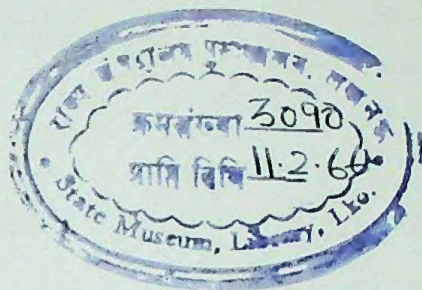 राज्य संग्रहालय पुस्तकालय, लखनऊ
क्रमसंख्या 3090
प्राप्ति तिथि 11.2.66
* State Museum, Library, Lko. *